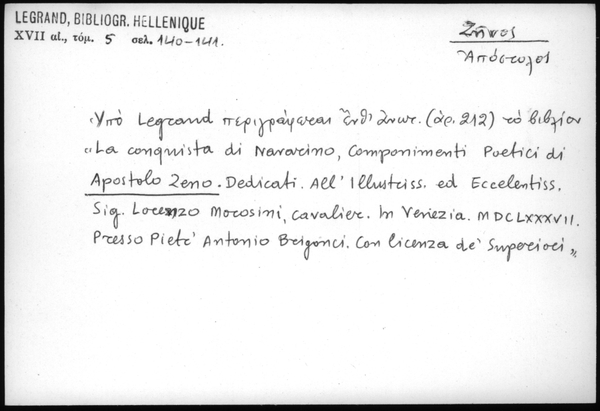 LEGRAND, BIBLIOGR. HELLENIQUE
XVII αἰ., τόμ. 5 σελ. 140-141.
Ζῆνος
Ἀπόστολος
Ὑπό Legrand περιγράφεται (ἀρ. 212) τό βιβλίον
«La conquista di Navarino, Componimenti Poetici di
Apostolo Zeno. Dedicati. All' Illustriss. ed Eccelentiss.
Sig. Lorenzo Morosini, cavalier. In Venezia. MDCLXXXVII.
Presso Pietr' Antonio Brigonci. Con licenza de' Superiori»